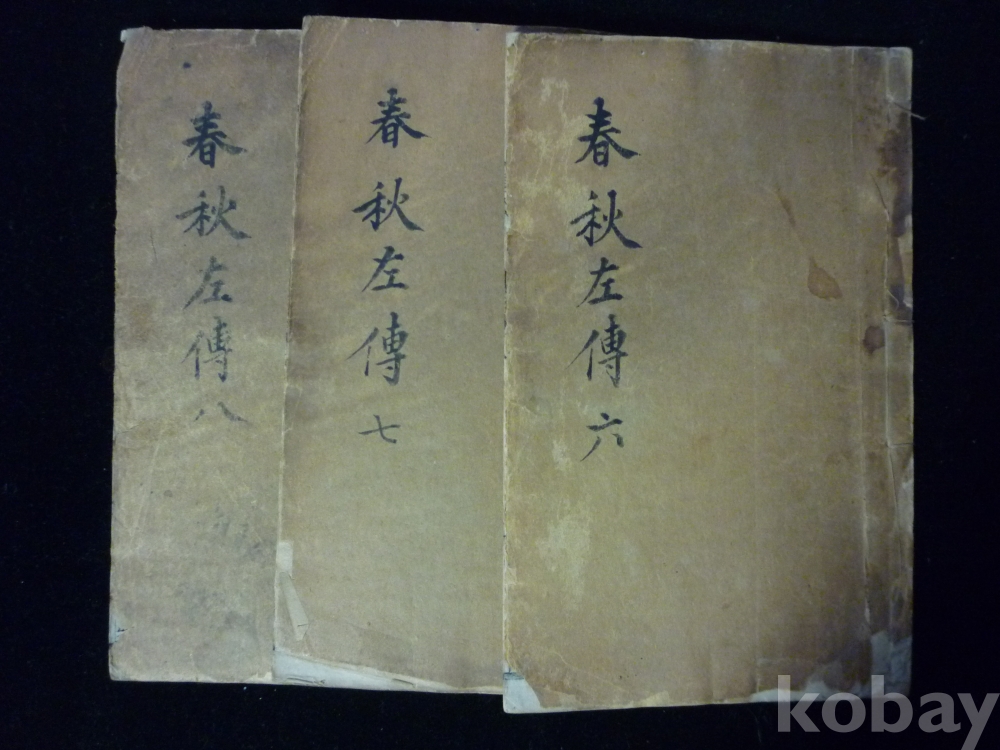 春秋左傳六
春秋左傳七
春秋左傳八
kobay